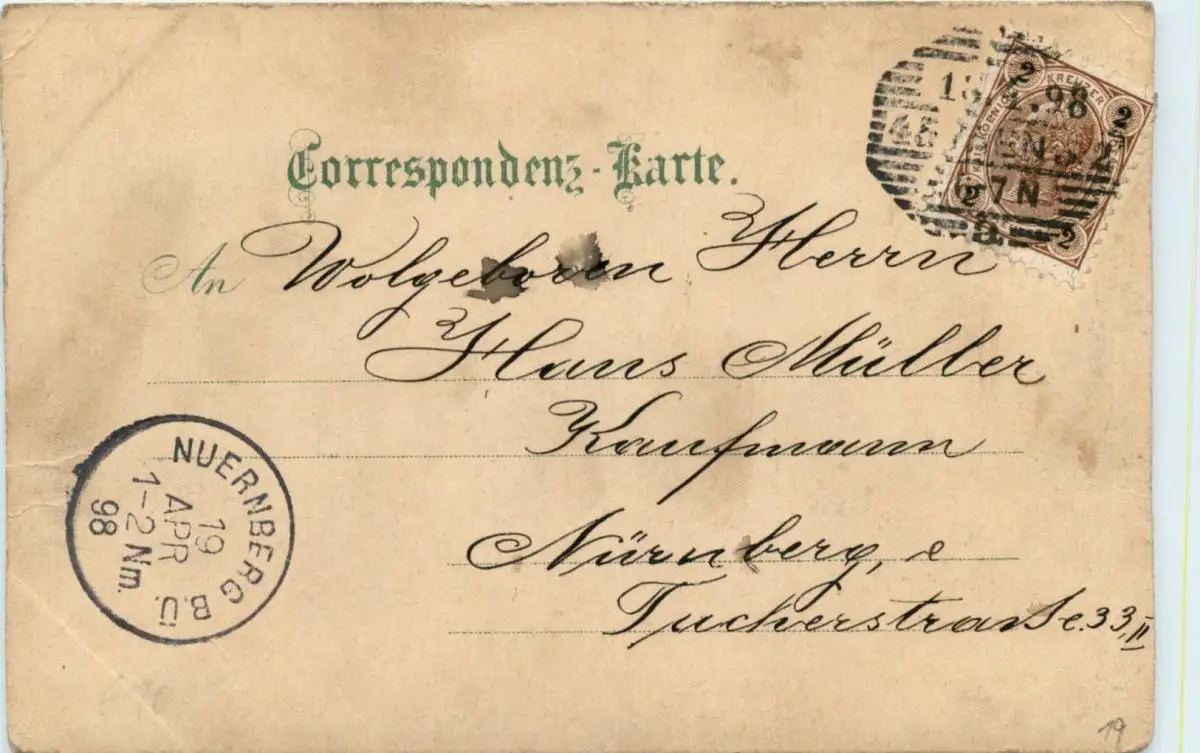 Correspondenz-Karte.
An Wolgeboren Herrn
Hans Müller
Kaufmann
Nürnberg, e
Tucherstraße 33, II
2 KREUZER 2
2 2
.98
6-7N
NUERNBERG B.Ü.
19
APR
1-2Nm.
98
19